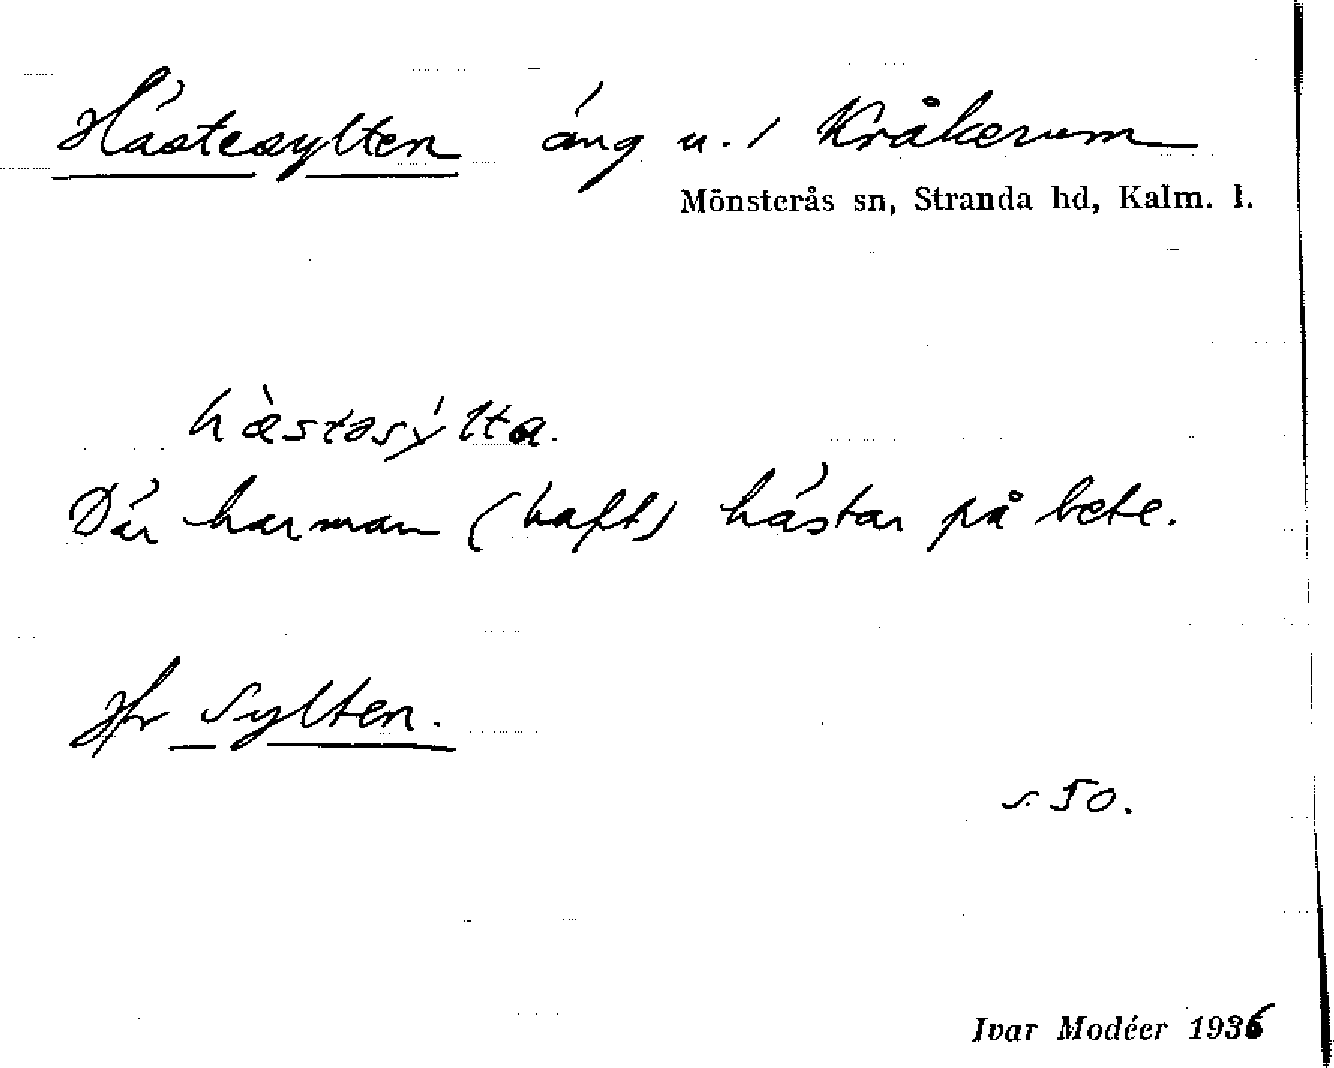 Hästesylten äng u. 1 Kråkerum
Mönsterås sn, Stranda hd, Kalm. l.
hæ̀stəsýlta.
Där har man (haft) hästar på bete.
Jfr Sylten.
s 50.
Ivar Modéer 1936